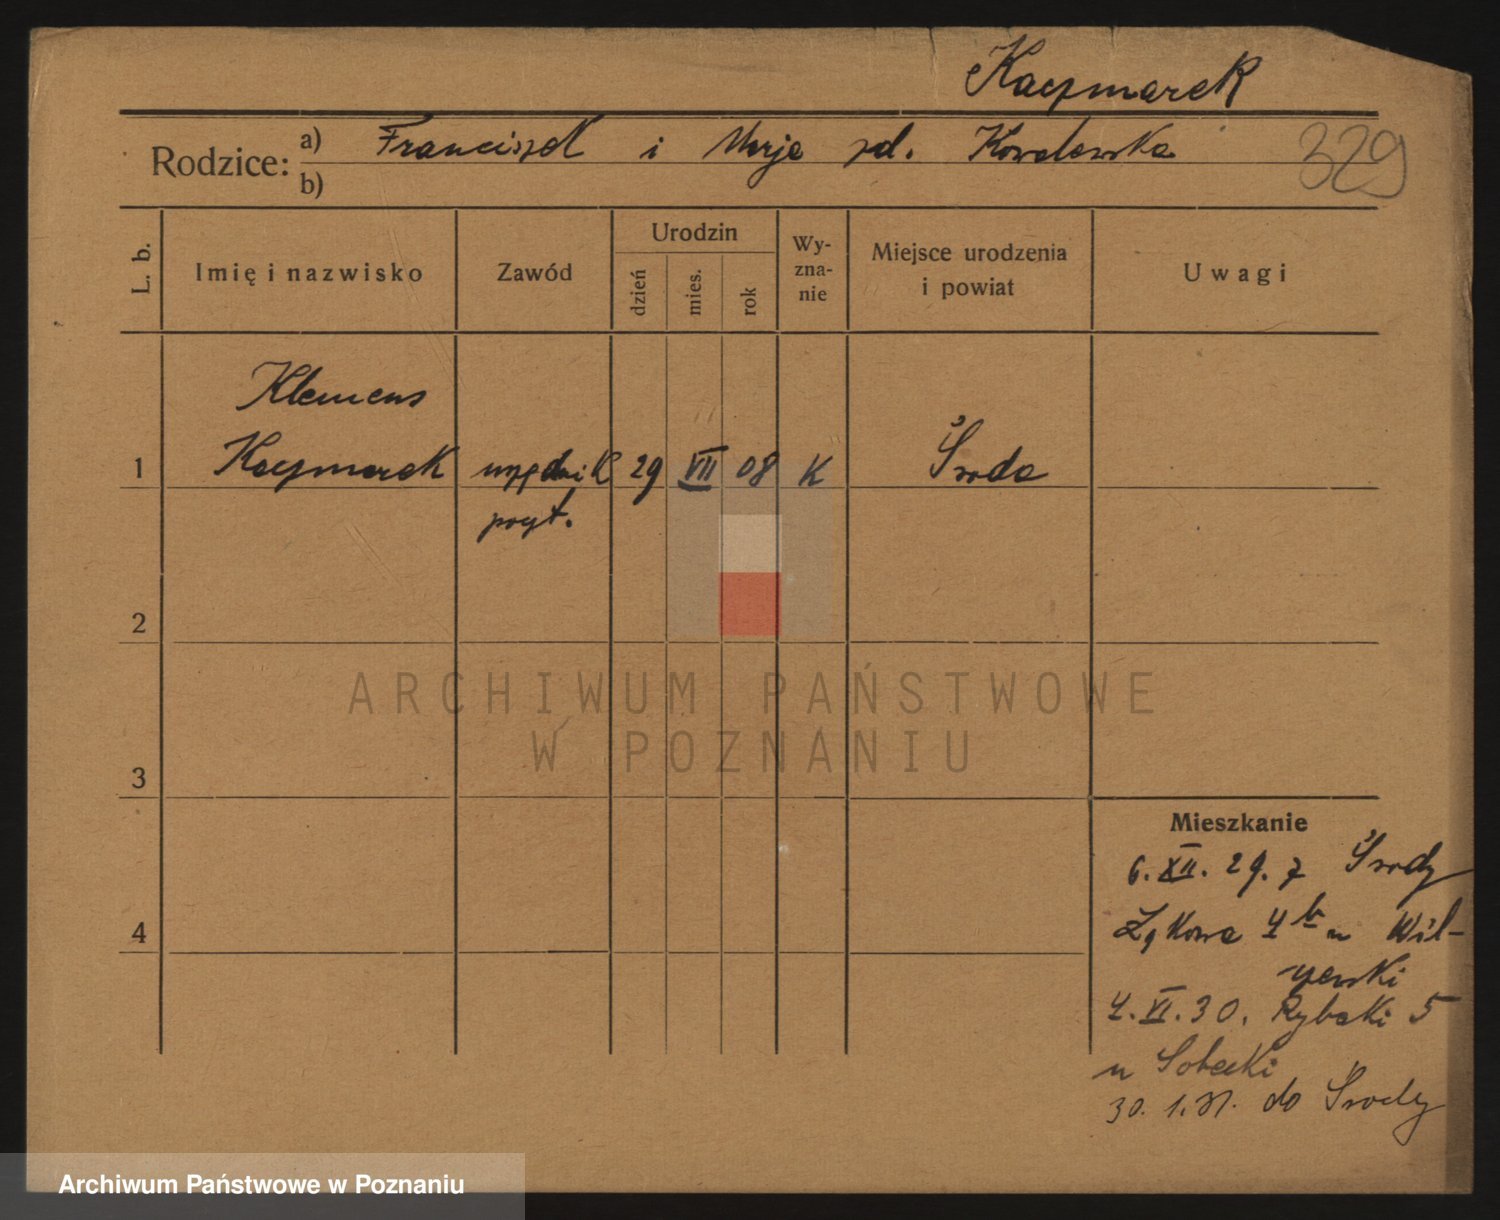 Kaczmarek
Rodzice: a) Franciszek i Marja zd. Kowalewska
b)
329
L. b.
Imię i nazwisko
Zawód
Urodzin
dzień
mies.
rok
Wy-
zna-
nie
Miejsce urodzenia
i powiat
Uwagi
Klemens
1 Kaczmarek urzędnik 29 VII 08 K Środa
poczt.
2
3
4
Mieszkanie
6. XII. 29. z Środy
Łąkowa 4 b u Wil-
czewski
4. VI. 30. Rybaki 5
u Sobecki
30. 1. 31. do Środy
ARCHIWUM PAŃSTWOWE
W POZNANIU
Archiwum Państwowe w Poznaniu